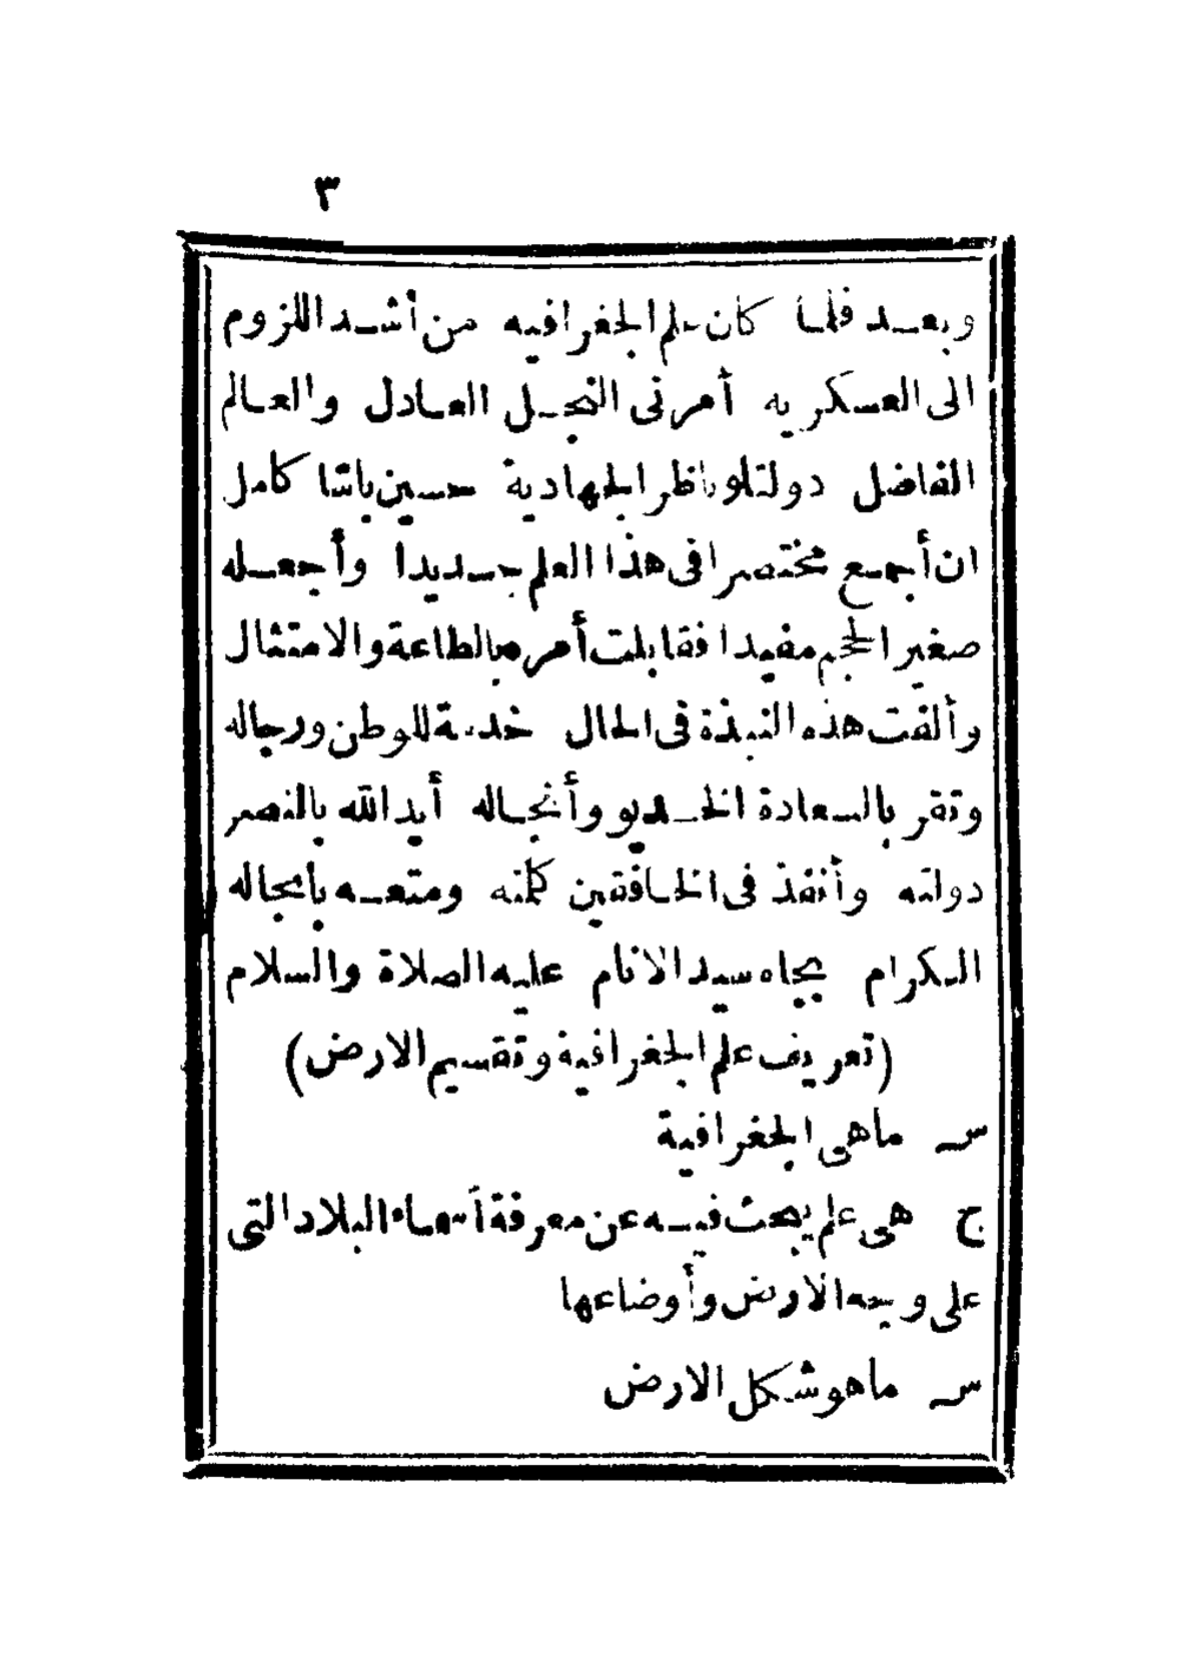 ٣
وبعد فلما كان علم الجغرافيه من أشد اللزوم
الى العسكريه أمرنى النجل العادل والعالم
الفاضل دولتلو ناظر الجهادية حسين باشا كامل
ان أجمع مختصرا فى هذا العلم جديدا وأجعله
صغير الحجم مفيدا فقابلت أمره بالطاعة والامتثال
وألفت هذه النبذة فى الحال خدمة للوطن ورجاله
وتقربا لسعادة الخديو وأنجاله أيد الله بالنصر
دولته وأنفذ فى الخافقين كلمته ومتعه بأنجاله
الكرام بجاه سيد الانام عليه الصلاة والسلام
(تعريف علم الجغرافية وتقسيم الارض)
س ماهى الجغرافية
ج هى علم يبحث فيه عن معرفة أسماء البلاد التى
على وجه الارض وأوضاعها
س ماهو شكل الارض